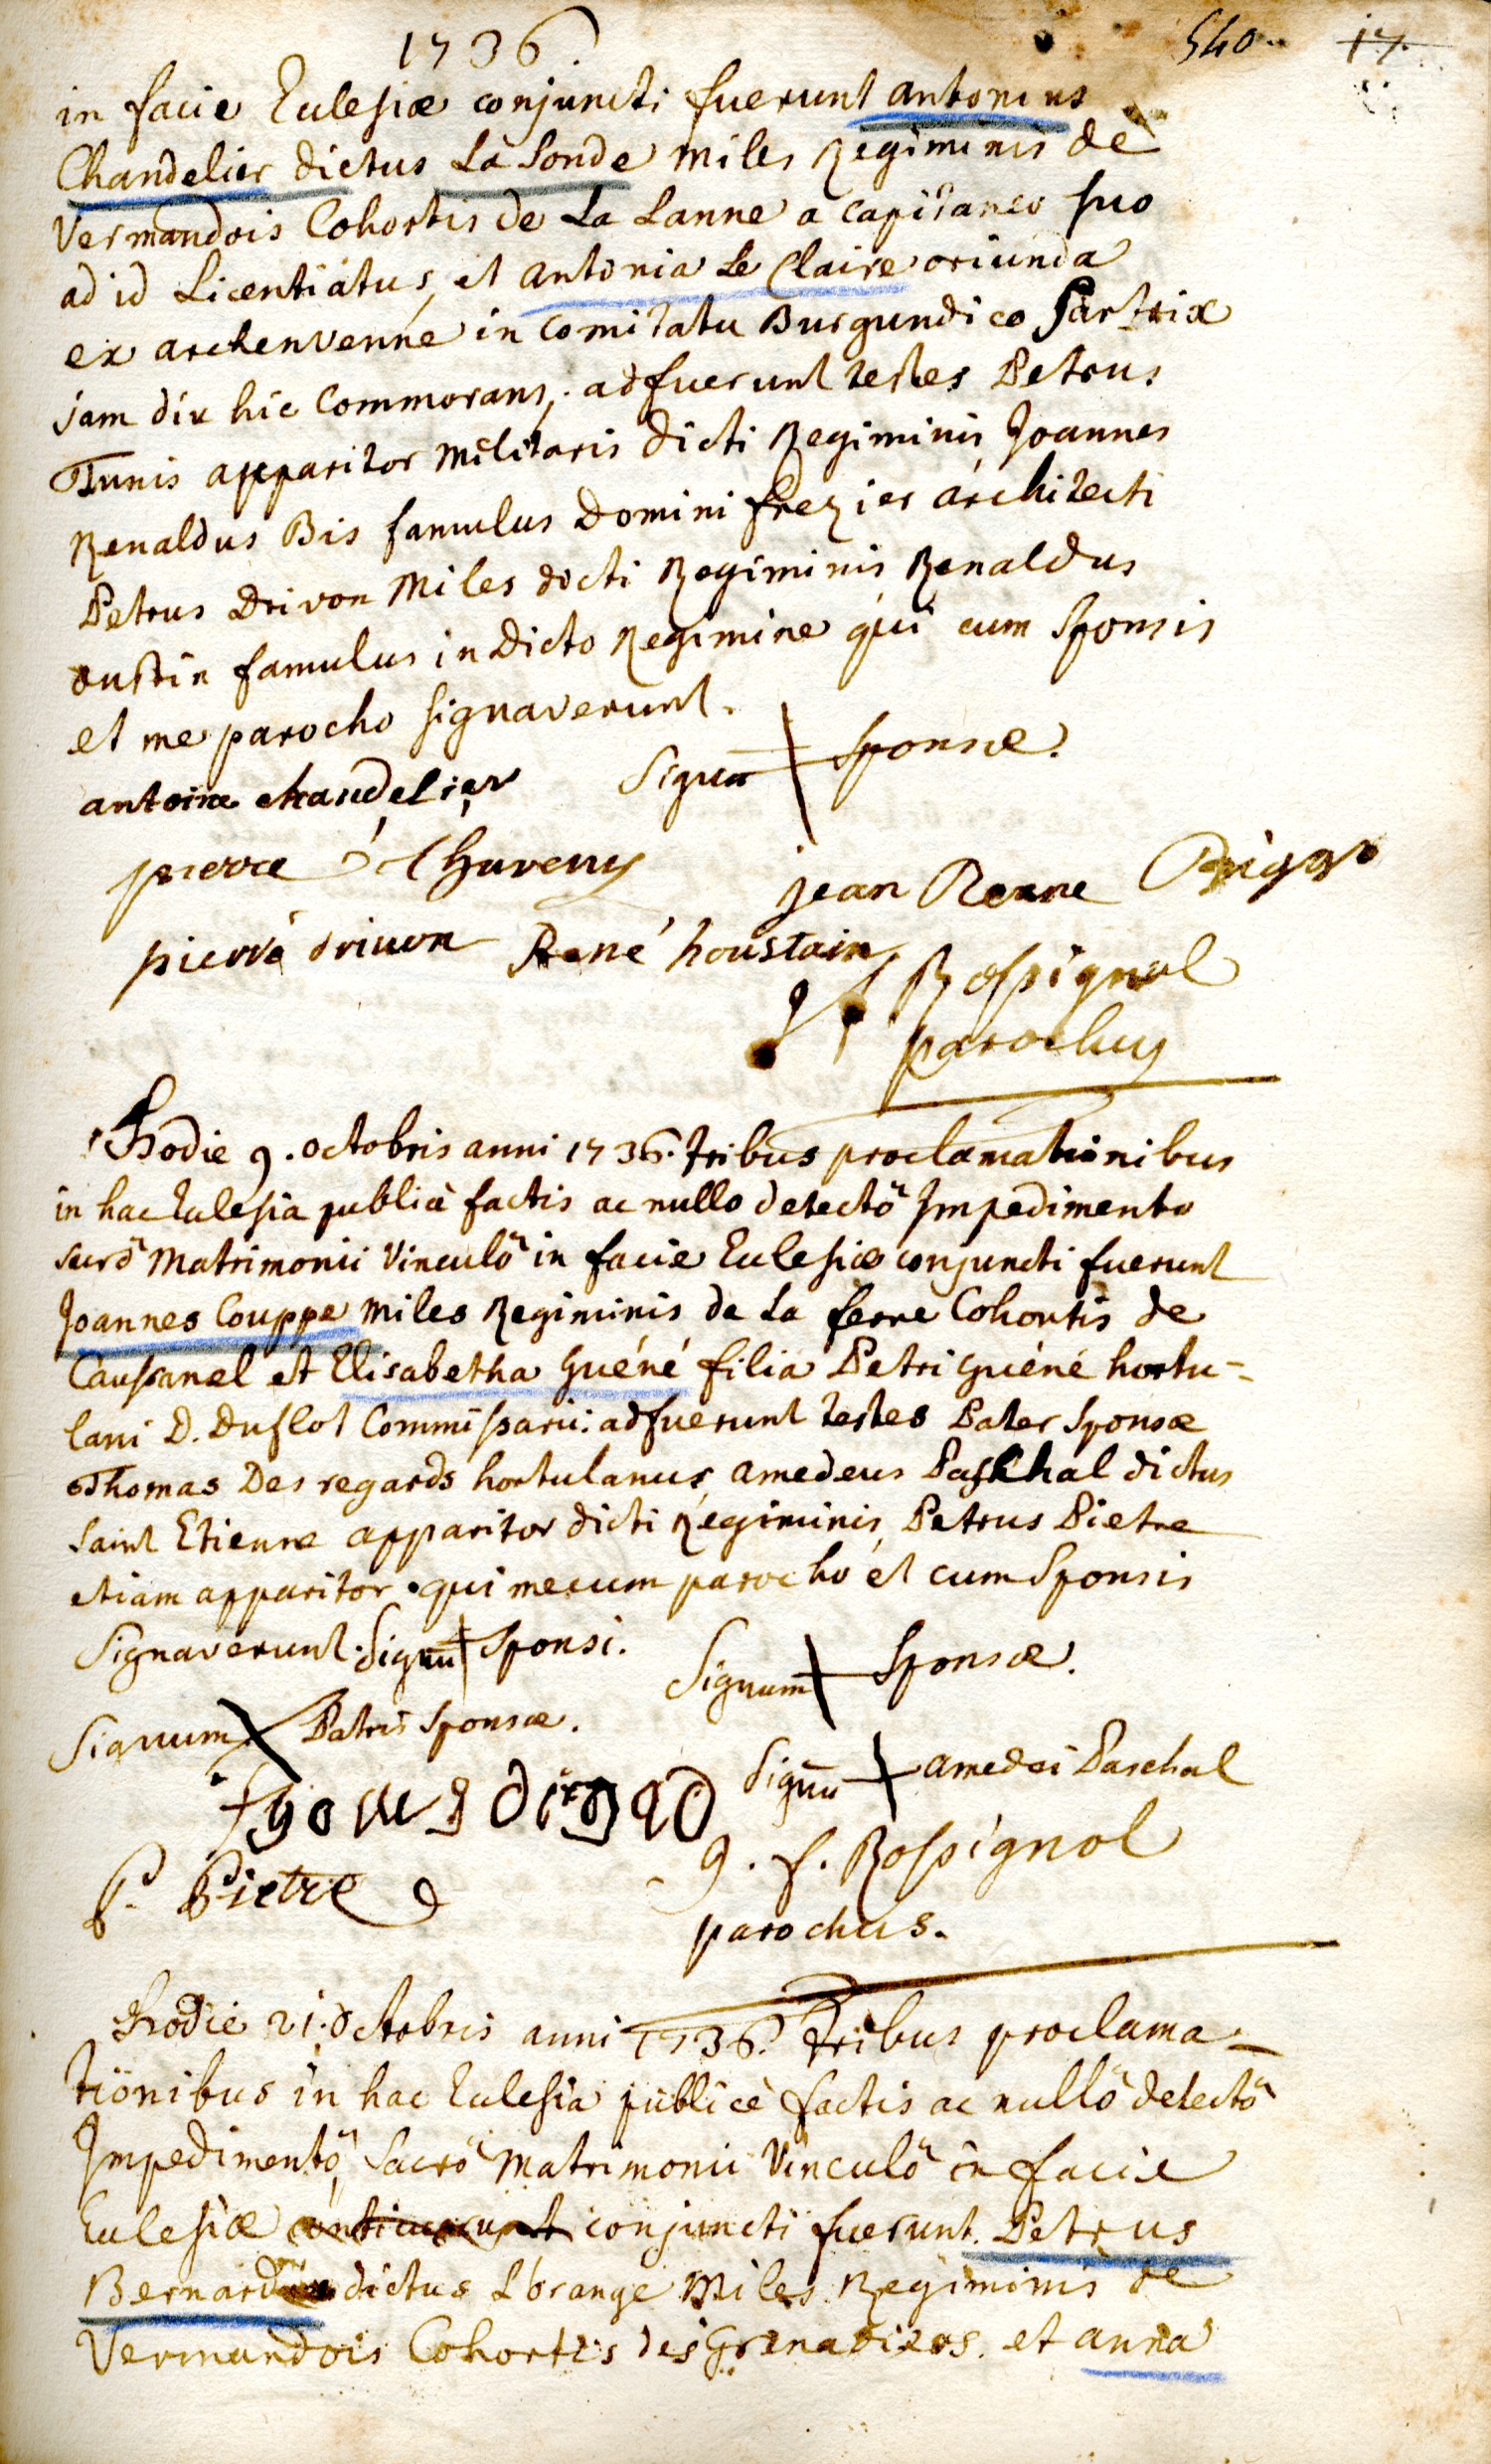 1736
540 17.
in facie Eclesiæ conjuncti fuerunt antonius
Chandelier dictus La Sonde miles Regiminis de
Vermandois Cohortis de La Lanne a capitaneo suo
ad id Licentiatus, et antonia Le Claire oriunda
ex archenvenne in Comitatu Burgundico Sartrix
jam diu hic Commorans. adfuerunt testes Petrus
Tunis apparitor militaris dicti Regiminis, Joannes
Renaldus Bis famulus Domini frezier architecti
Petrus Drivon Miles dicti Regiminis Renaldus
oustin famulus in dicto Regimine qui cum Sponsis
et me parocho signaverunt.
antoine chandelier Signū + Sponsæ.
pierre Thuveny
jean Renne
pierre drivon René houstain
Rossignol
parochus
Hodie 9. octobris anni 1736. tribus proclamationibus
in hac Eclesia publicè factis ac nullo detectô Impedimento
sacrô Matrimonii Vinculô in facie Eclesiæ conjuncti fuerunt
Joannes Couppe miles Regiminis de La ferre Cohortis de
Caussanel et Elisabetha Guéné filia Petri Guéné hortu-
lani D. Duflot Commissarii: adfuerunt testes Pater Sponsæ
Thomas Des regards hortulanus, amedeus Paschal dictus
Saint Etienne apparitor dicti Regiminis, Petrus Pietre
etiam apparitor. qui mecum parocho et cum Sponsis
Signaverunt. Signū + Sponsi. Signum + Sponsæ.
Signum + Patris Sponsæ.
Signū + amedei Paschal
P. Pietre
J. f. Rossignol
parochus.
Hodie 21. octobris anni 1736. tribus proclama-
tionibus in hac Eclesia publicè factis ac nullô detectô
Impedimentô, Sacrô Matrimonii Vinculô in facie
Eclesiæ conjuncti fuerunt. Petrus
Bernard dictus L'orange Miles Regiminis de
Vermandois Cohortis des Grenadiers. et anna